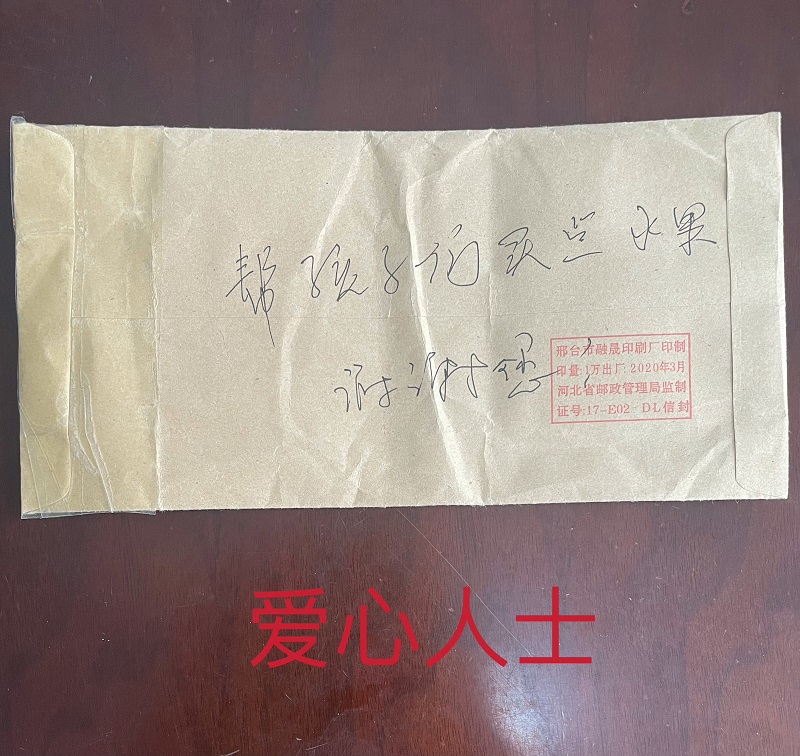 帮孩子们买点水果
谢谢您！
邢台市融晟印刷厂印制
印量:1万出厂:2020年3月
河北省邮政管理局监制
证号:17-E02-DL信封
爱心人士